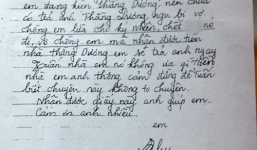 em đang kiện Thắng Dương, nên chưa
có trả anh. Thắng Dương hạn bị vợ
chồng em lừa chữ ký nhân, chết
đi, vợ chồng em mà nhận được tiền
nhà Thắng Dương em sẽ trả anh ngay
nhà em no không ưa gì
nhà em anh thông cảm đừng để
biết chuyện này không to chuyện.
Nhận được giấy này anh giúp em.
Cảm ơn anh nhiều.
em